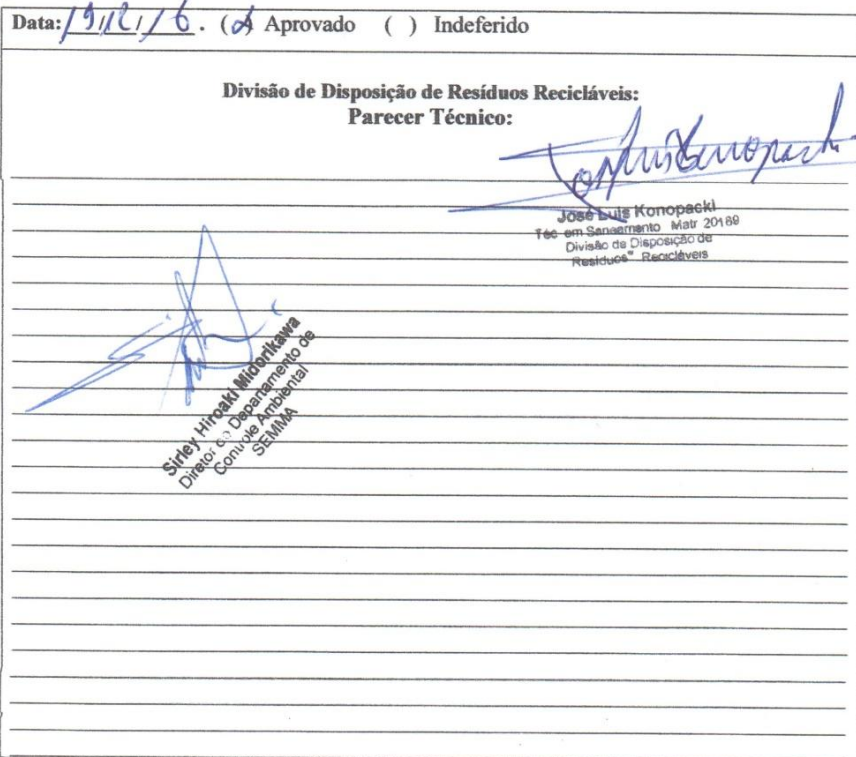 Data: 19/12/16. (X) Aprovado ( ) Indeferido
Divisão de Disposição de Resíduos Recicláveis:
Parecer Técnico:
José Luis Konopacki
Téc em Saneamento Matr 20169
Divisão de Disposição de
Resíduos" Recicláveis
Sirley Hiroaki Midorikawa
Diretor do Departamento de
Controle Ambiental
SEMMA